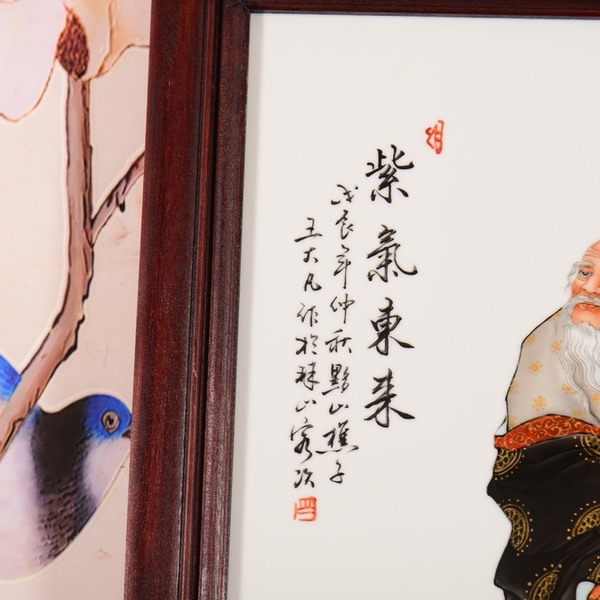 紫氣東来
戊辰年仲秋黟山樵子
王大凡作於珠山客次